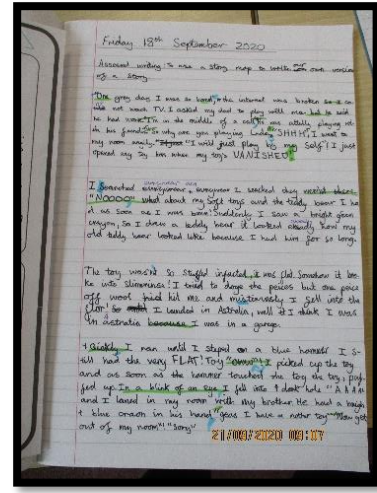 Friday 18th September 2020
Assessed writing: To use a story map to write our own version
of a story.
"One grey day I was so bored, the internet was broken so I co
uld not watch TV. I asked my dad to play with me but he said
he had work "I'm in the middle of a call" he was actually playing
on his "so why are you playing "SHHH", I went to
my room angrily. "I will just play by my self" I just
opened my toy box when my toys VANISHED
I searched everywhere I looked they
"NOOOO what about my soft toys and the teddy bear I ha
d as soon as I was born. Suddenly I saw a bright green
crayon, so I drew a teddy bear it looked exactly how my
old teddy bear looked like because I had him for so long.
The toy wasn't so stuffed infact, it was flat. Somehow it bro
ke into I tried to dodge the peices but one peice
off wool hit me and I fell into the
floor I landed in Astrelia, well it think I was
in because I was in a garage.
Quickly I ran until I steped on a blue hammer I s-
till had the very FLAT! Toy I picked up the toy
and as soon as the hammer touched the toy the toy, puf-
fed up In a blink of an eye I fell into dark hole "AAAA
and I landed in my room with my brother. He had a brigh
t blue craon in his hand I have a nother toy now get
out of my room" "sorry"
21/09/2020 08:07